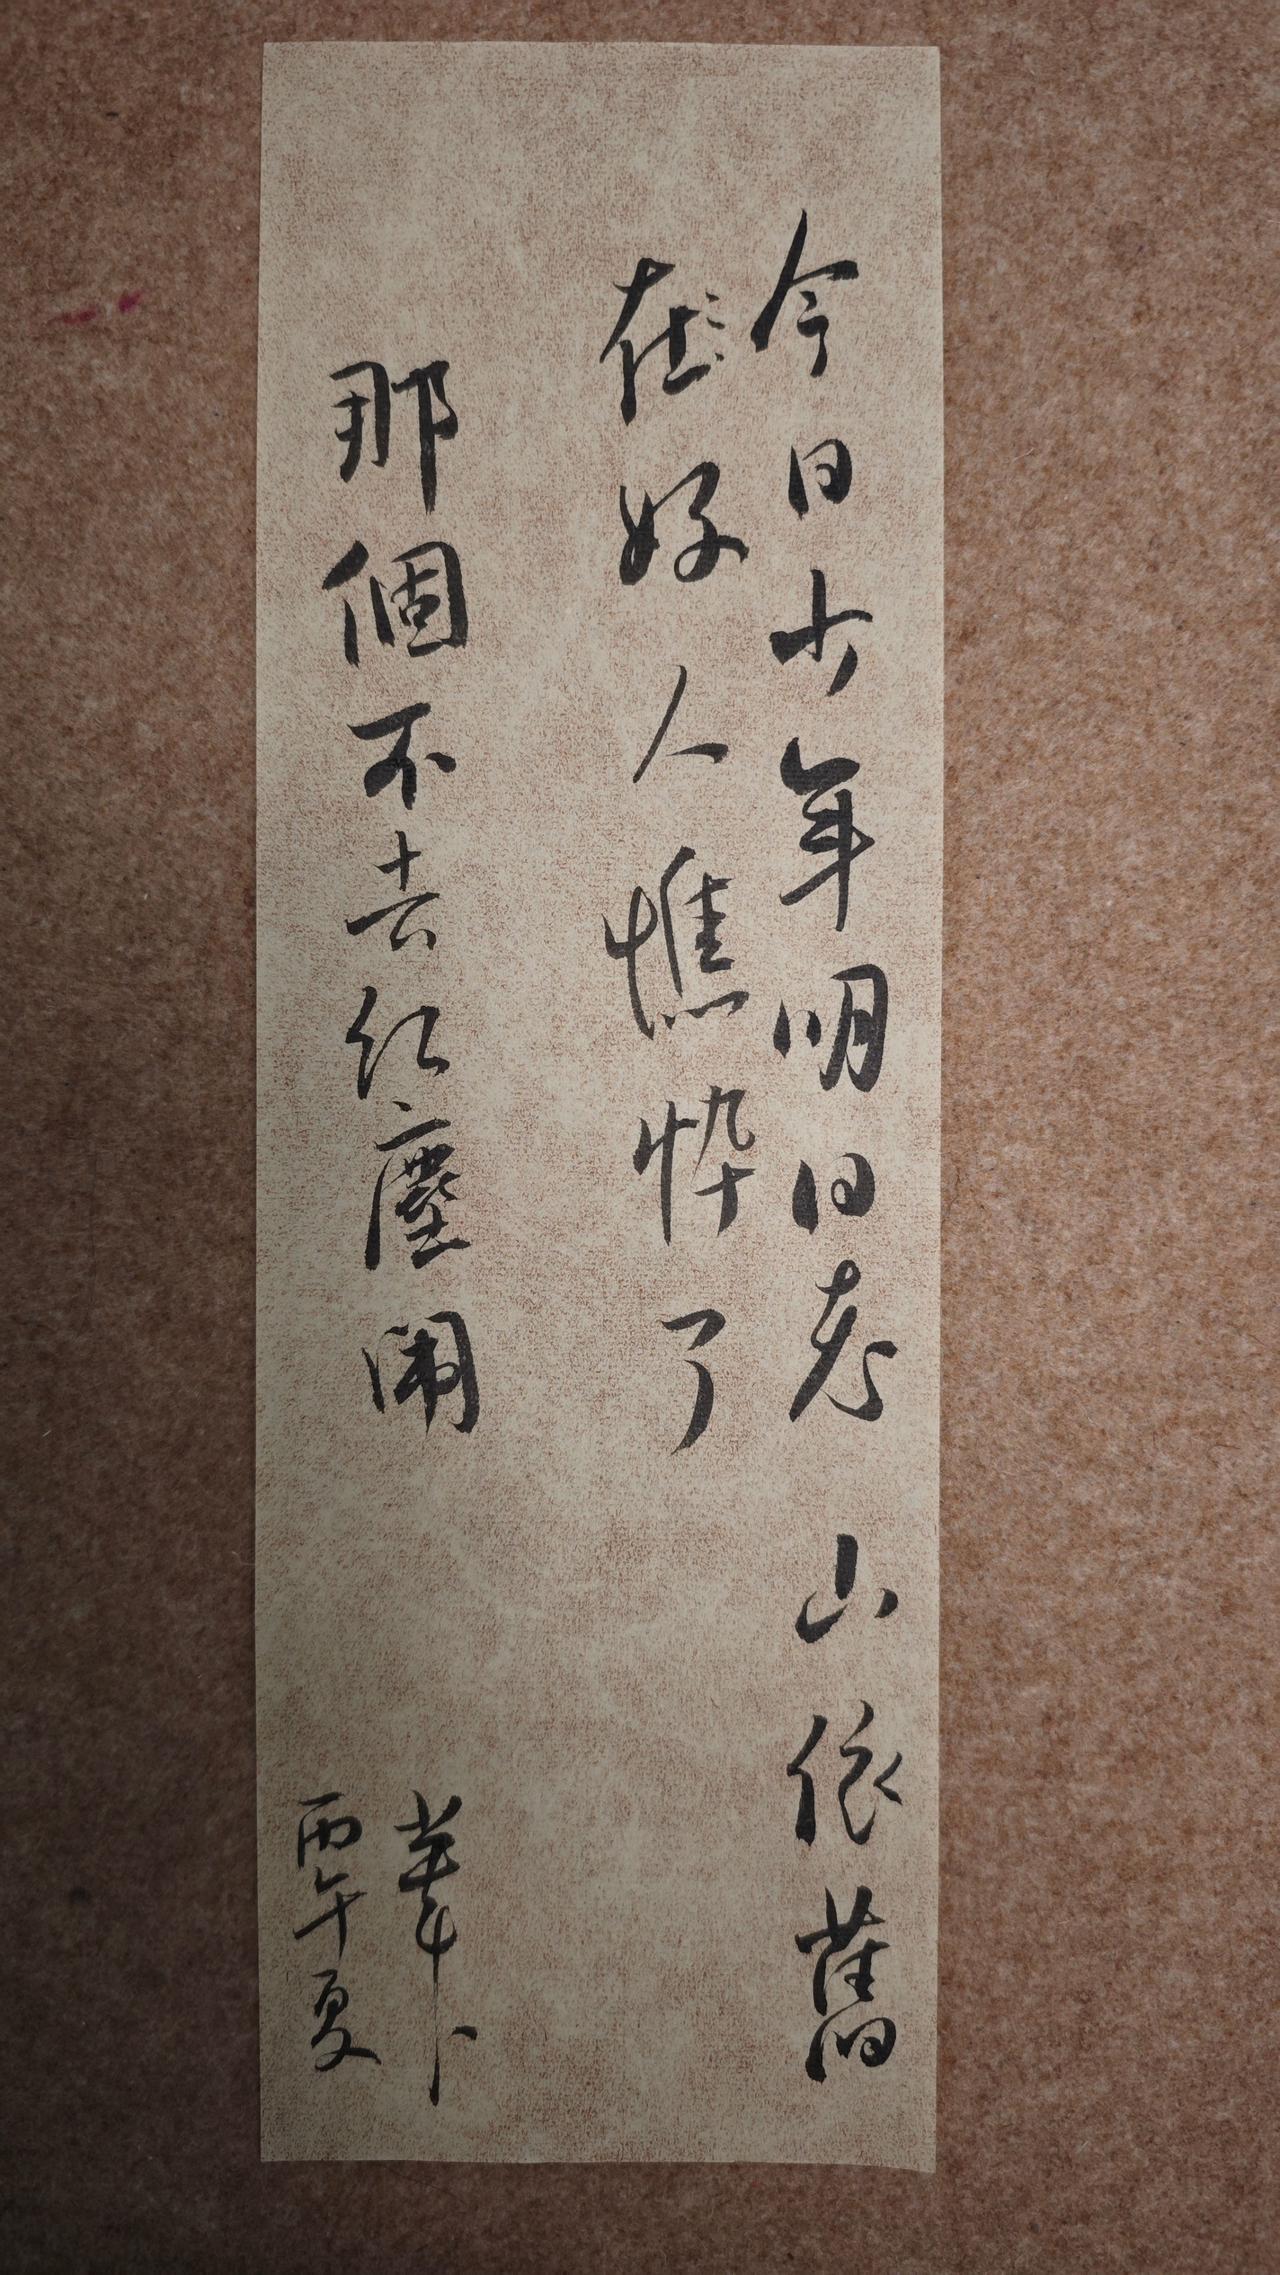 今日少年明日老山依舊
在好人憔悴了
那個不去红塵闹
丙午夏